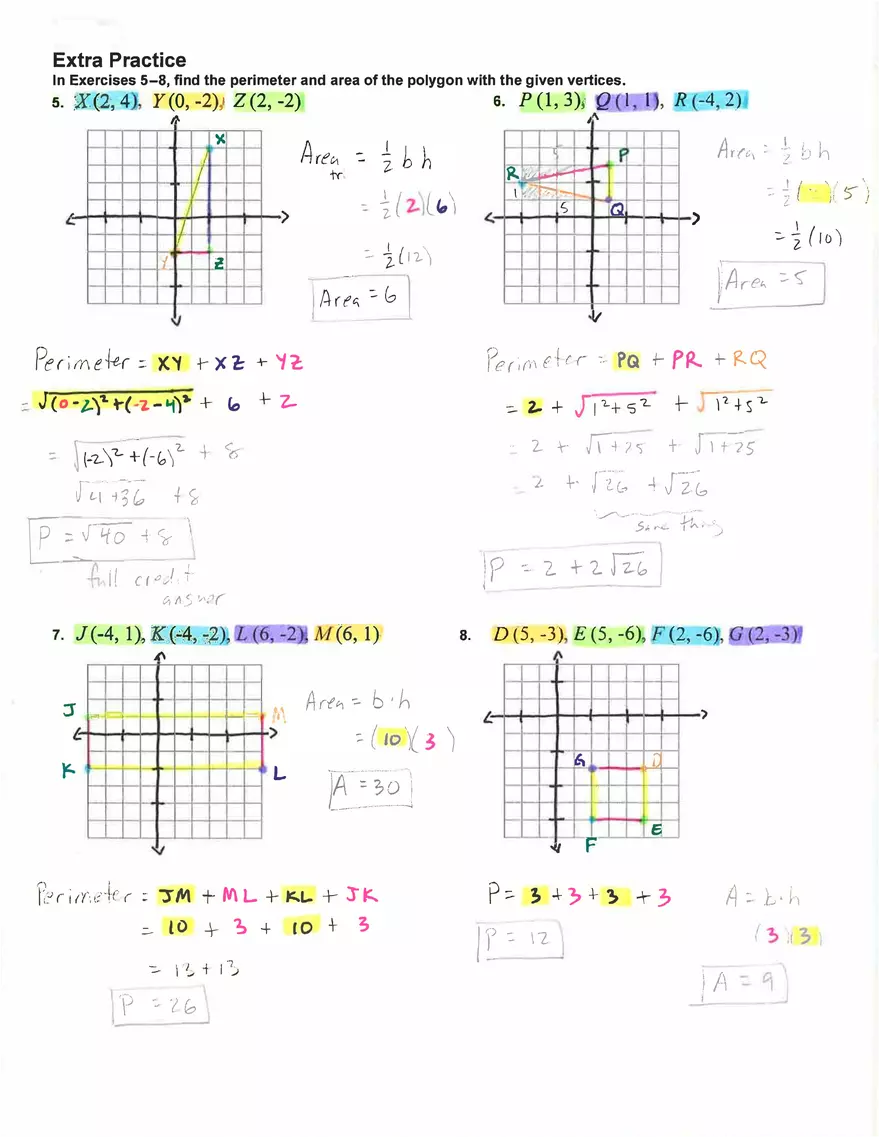 Extra Practice
In Exercises 5–8, find the perimeter and area of the polygon with the given vertices.
5. X(2, 4), Y(0, -2), Z(2, -2)
X
Y
Z
Area tr. = 1/2 b h
= 1/2 (2)(6)
= 1/2 (12)
Area = 6
Perimeter = XY + XZ + YZ
= √(0-2)² + (-2-4)² + 6 + 2
= √(-2)² + (-6)² + 8
√4+36 + 8
P = √40 + 8
full credit
answer
6. P(1, 3), Q(1, 1), R(-4, 2)
5
P
R
1
5
Q
Area = 1/2 b h
= 1/2 (2)(5)
= 1/2 (10)
Area = 5
Perimeter = PQ + PR + RQ
= 2 + √1²+5² + √1²+5²
= 2 + √1+25 + √1+25
= 2 + √26 + √26
same thing
P = 2 + 2√26
7. J(-4, 1), K(-4, -2), L(6, -2), M(6, 1)
J
M
K
L
Area = b·h
= (10)(3)
A = 30
Perimeter = JM + ML + KL + JK
= 10 + 3 + 10 + 3
= 13 + 13
P = 26
8. D(5, -3), E(5, -6), F(2, -6), G(2, -3)
G
D
F
E
P = 3 + 3 + 3 + 3
P = 12
A = b·h
(3)(3)
A = 9